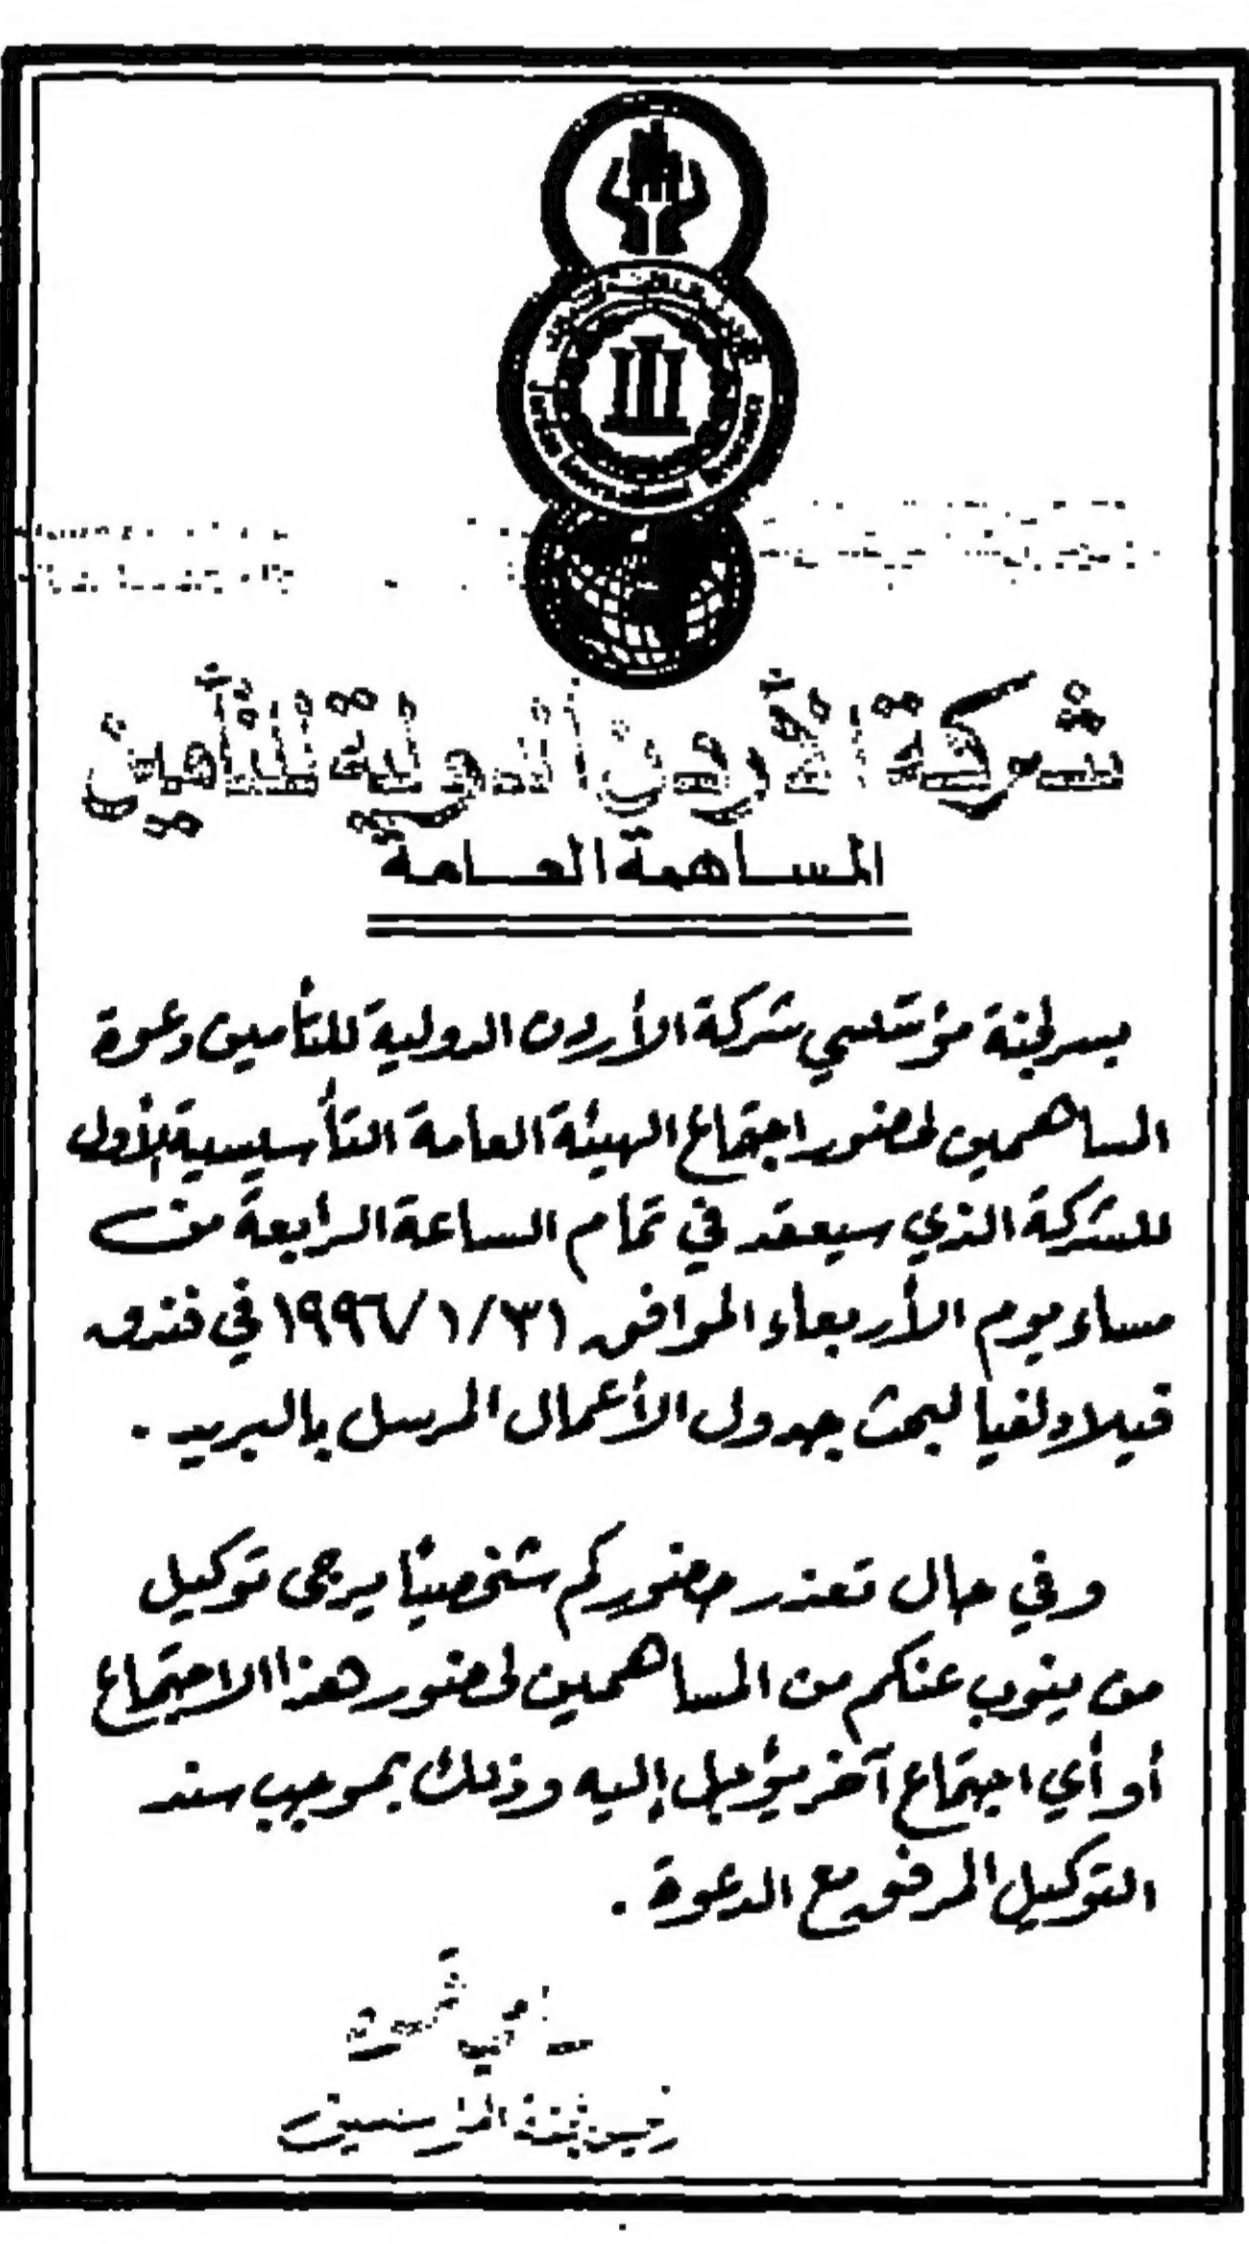 شركة الأردن الدولية للتأمين
المساهمة العامة
يسر لجنة مؤسسي شركة الأردن الدولية للتأمين دعوة
المساهمين لحضور اجتماع الهيئة العامة التأسيسية الأول
للشركة الذي سيعقد في تمام الساعة الرابعة من
مساء يوم الأربعاء الموافق ١٩٩٦/١/٣١ في فندق
فيلادلفيا لبحث جدول الأعمال المرسل بالبريد .
وفي حال تعذر حضوركم شخصياً يرجى توكيل
من ينوب عنكم من المساهمين لحضور هذا الاجتماع
أو أي اجتماع آخر يؤجل إليه وذلك بموجب سند
التوكيل المرفق مع الدعوة .
رئيس لجنة المؤسسين